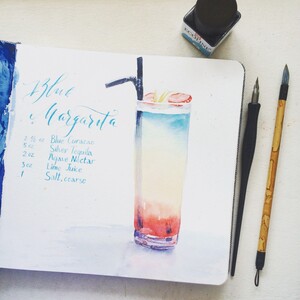 Blue
Margarita
Blue Curacao
Silver Tequila
2 oz Agave Nectar
3 oz Lime Juice
1 Salt, coarse